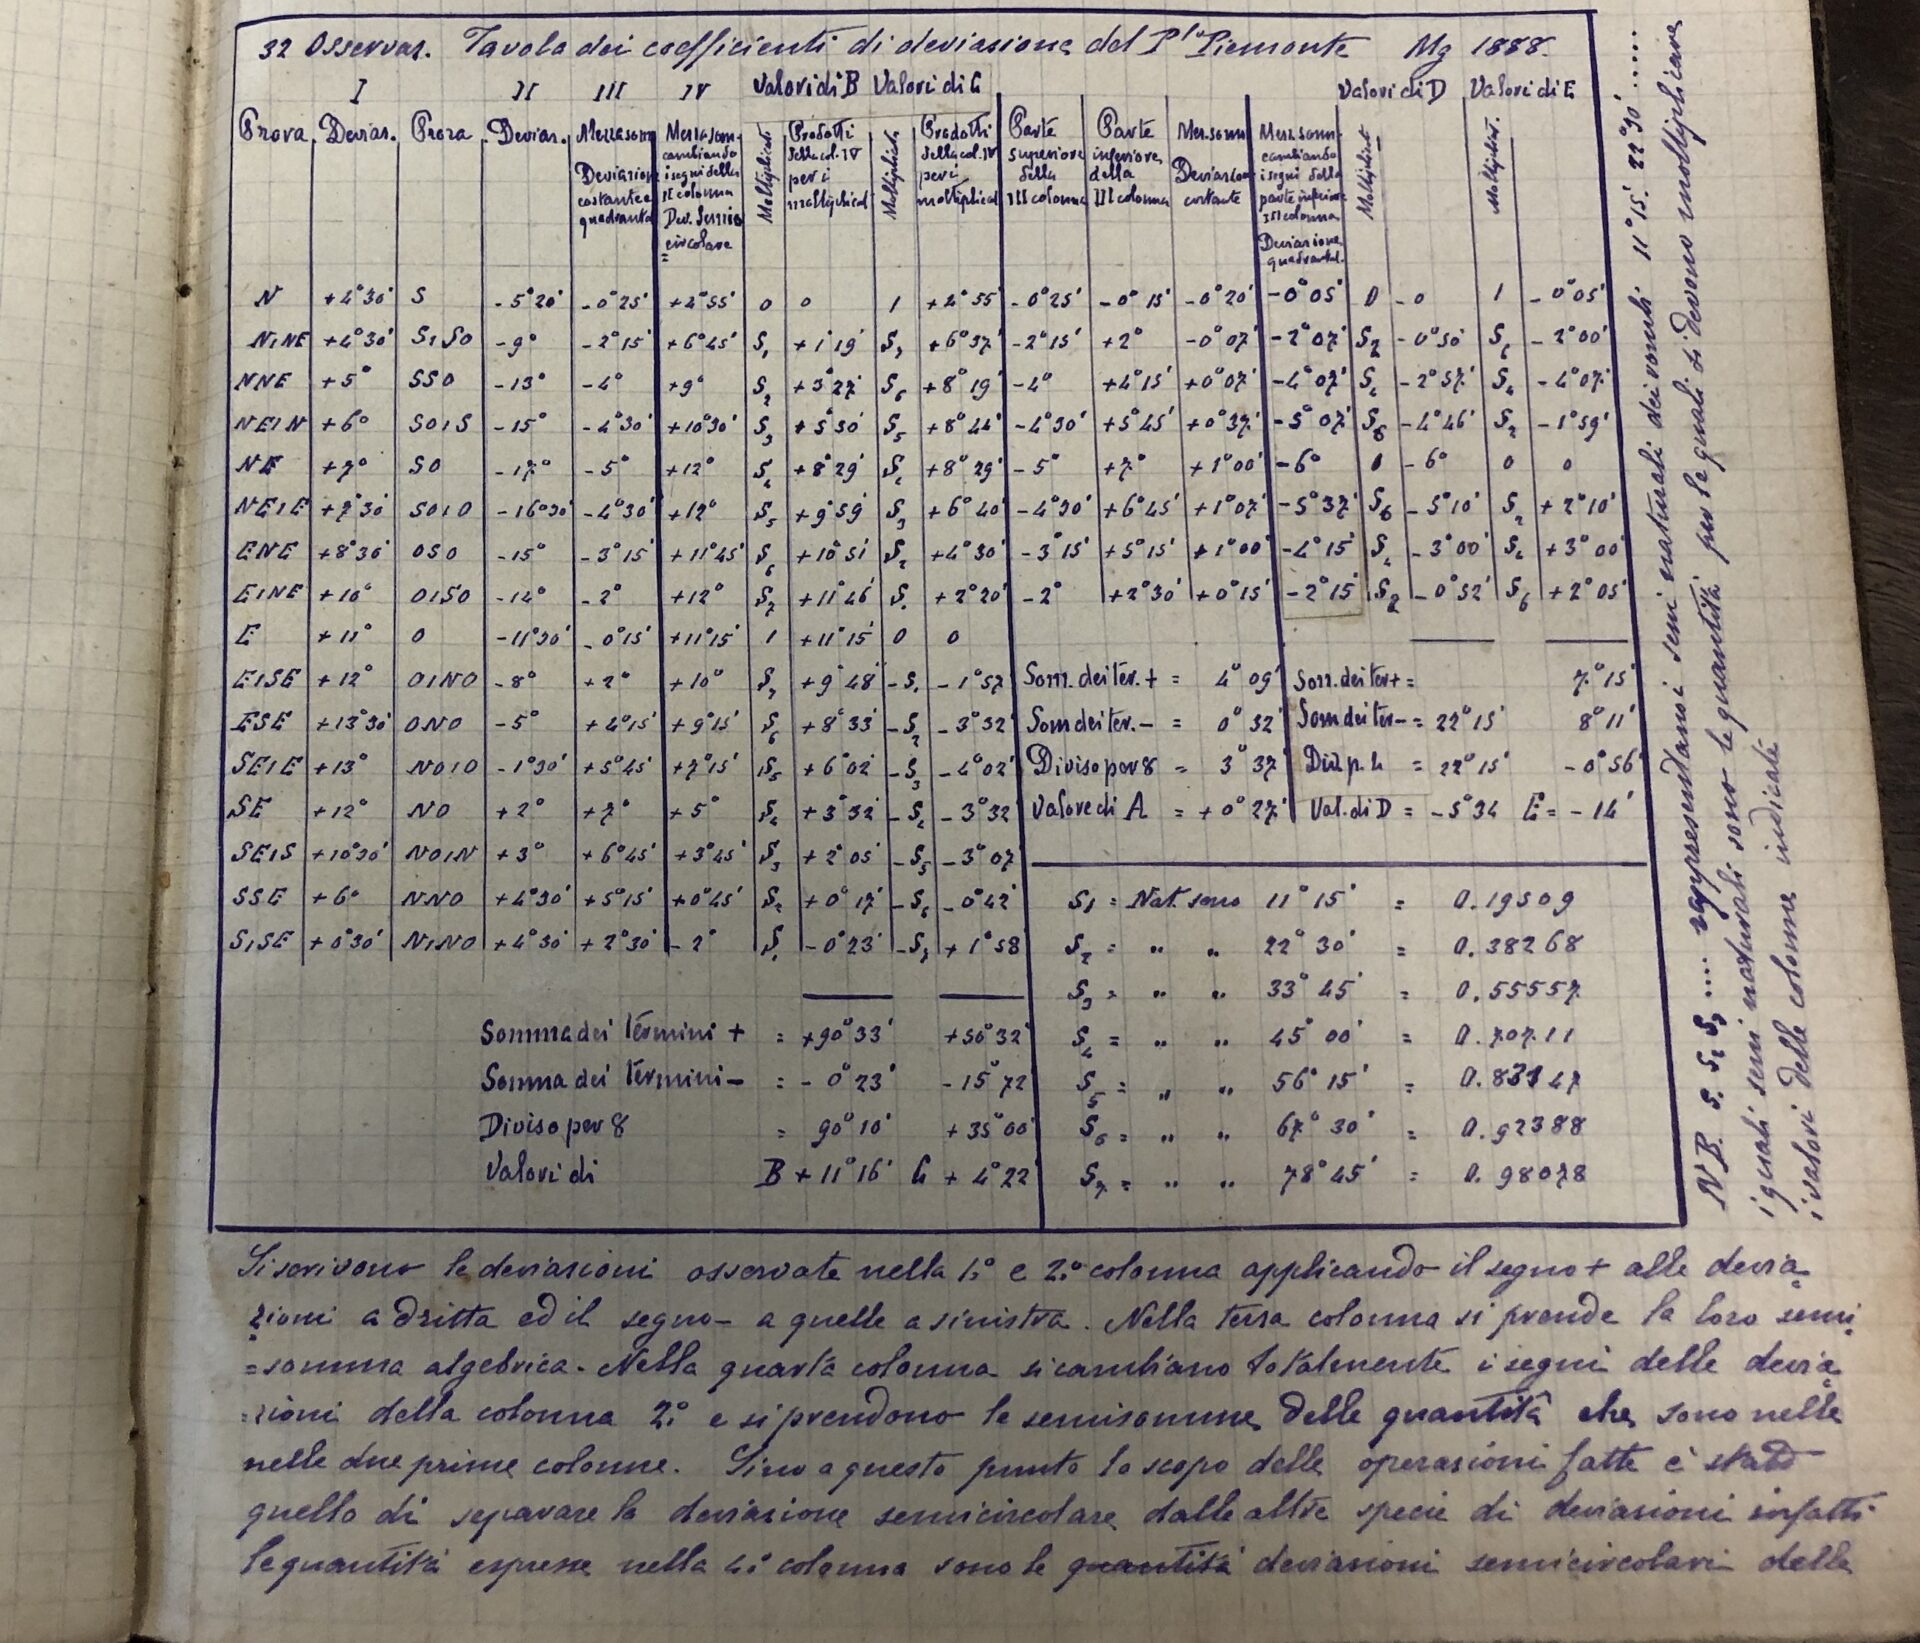 32 Osservaz. Tavola dei coefficienti di deviazione del P.to Piemonte Mg 1888.
I II III IV Valori di B Valori di C Valori di D Valori di E
Prora Deviaz. Prora Deviaz. Mezzasom Mezzasom. Moltiplicat Prodotti Moltiplicat Prodotti Parte Parte Mez.somm Mez.somm. Moltiplicat Moltiplicat.
cambiando della col. IV della col. IV superiore inferiore cambiando
Deviazione i segni della per i per i della della Deviazion i segni della
costante e II colonna moltiplicat moltiplicat III colonna III colonna costante parte inferiore
quadranta Dev. Semi= III colonna
circolare Deviazione
quadrantal.
N +4°30' S -5°20' -0°25' +4°55' 0 0 1 +4°55' -0°25' -0°15' -0°20' -0°05' 0 -0 1 -0°05'
N1NE +4°30' S1SO -9° -2°15' +6°45' S1 +1°19' S7 +6°37' -2°15' +2° -0°07' -2°07' S2 -0°50' S6 -2°00'
NNE +5° SSO -13° -4° +9° S2 +3°27' S6 +8°19' -4° +4°15' +0°07' -4°07' S4 -2°57' S4 -4°07'
NE1N +6° SO1S -15° -4°30' +10°30' S3 +5°50' S5 +8°44' -4°30' +5°45' +0°37' -5°07' S6 -4°46' S2 -1°59'
NE +7° SO -17° -5° +12° S4 +8°29' S4 +8°29' -5° +7° +1°00' -6° 1 -6° 0 0
NE1E +7°30' SO1O -16°30' -4°30' +12° S5 +9°59' S3 +6°40' -4°30' +6°45' +1°07' -5°37' S6 -5°10' S2 +2°10'
ENE +8°30' OSO -15° -3°15' +11°45' S6 +10°51' S2 +4°30' -3°15' +5°15' +1°00' -4°15' S4 -3°00' S4 +3°00'
E1NE +10° O1SO -14° -2° +12° S7 +11°46' S1 +2°20' -2° +2°30' +0°15' -2°15' S2 -0°52' S6 +2°05'
E +11° O -11°30' -0°15' +11°15' 1 +11°15' 0 0
E1SE +12° O1NO -8° +2° +10° S7 +9°48' -S1 -1°57' Som. dei ter. + = 4°09' Som. dei ter + = 7°15'
ESE +13°30' ONO -5° +4°15' +9°15' S6 +8°33' -S2 -3°32' Som dei ter. - = 0°32' Som dei ter - = 22°15' 8°11'
SE1E +13° NO1O -1°30' +5°45' +7°15' S5 +6°02' -S3 -4°02' Diviso per 8 = 3°37' Div. p. 4 = 22°15' -0°56'
SE +12° NO +2° +7° +5° S4 +3°32' -S4 -3°32' Valore di A = +0°27' Val. di D = -5°34 E = -14'
SE1S +10°30' NO1N +3° +6°45' +3°45' S3 +2°05' -S5 -3°07'
SSE +6° NNO +4°30' +5°15' +0°45' S2 +0°17' -S6 -0°42'
S1SE +0°30' N1NO +4°30' +2°30' -2° S1 -0°23' -S7 +1°58'
Somma dei termini + = +90°33' +50°32'
Somma dei termini - = -0°23' -15°72
Diviso per 8 = 90°10' +35°00'
Valori di B +11°16' C +4°22'
S1 = Nat. seno 11°15' = 0.19509
S2 = " " 22°30' = 0.38268
S3 = " " 33°45' = 0.55557
S4 = " " 45°00' = 0.70711
S5 = " " 56°15' = 0.83147
S6 = " " 67°30' = 0.92388
S7 = " " 78°45' = 0.98078
N.B. S1 S2 S3 .... rappresentano i seni naturali dei rombi 11°15'. 22°30' .....
i quali seni naturali sono le quantità per le quali si devono moltiplicare
i valori delle colonne indicate
Si scrivono le deviazioni osservate nella 1.° e 2.° colonna applicando il segno + alle devia=
zioni a dritta ed il segno - a quelle a sinistra. Nella terza colonna si prende la loro semi=
=somma algebrica. Nella quarta colonna si cambiano totalmente i segni delle devia=
=zioni della colonna 2.° e si prendono le semisomme delle quantità che sono nelle
nelle due prime colonne. Sino a questo punto lo scopo delle operazioni fatte è stato
quello di separare la deviazione semicircolare dalle altre specie di deviazioni infatti
le quantità espresse nella 4.° colonna sono le quantità deviazioni semicircolari delle